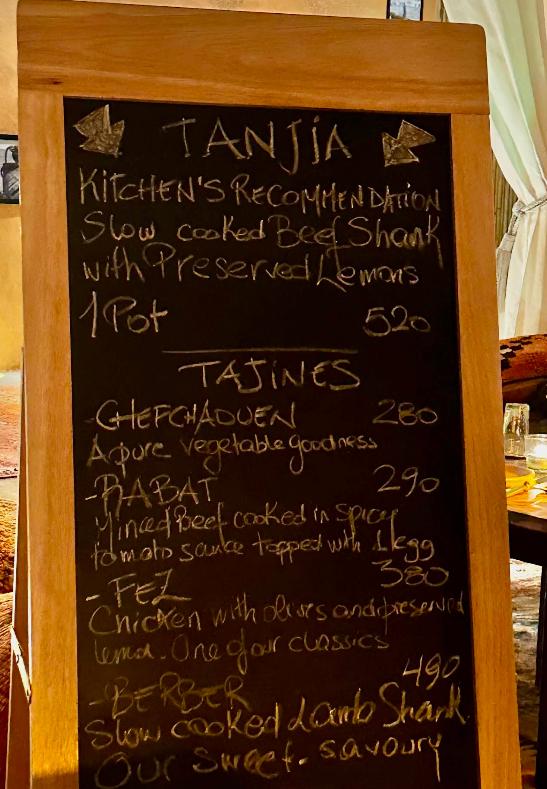 TANJIA
KITCHEN'S RECOMMENDATION
Slow cooked Beef Shank
with Preserved Lemons
1 Pot 520
TAJINES
-CHEFCHAOUEN 280
A pure vegetable goodness
-RABAT 290
Minced Beef cooked in spicy
tomato sauce topped with 1 egg
-FEZ 380
Chicken with olives and preserved
lemon. One of our classics
-BERBER 490
Slow cooked Lamb Shank.
Our sweet-savoury